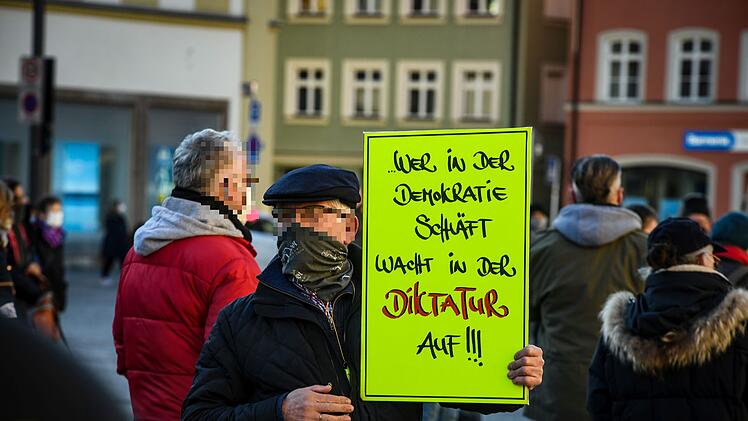 ...WER IN DER
DEMOKRATIE
SCHLÄFT
WACHT IN DER
DIKTATUR
AUF!!!